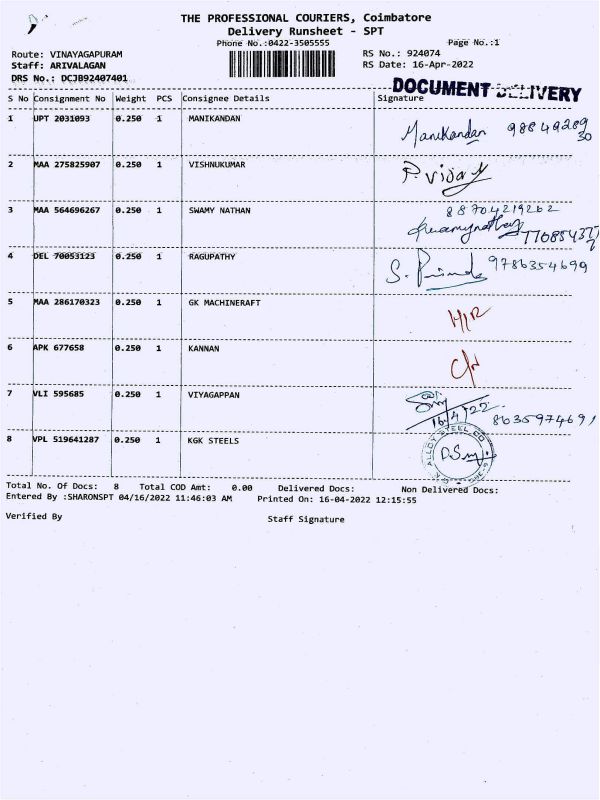 THE PROFESSIONAL COURIERS, Coimbatore
Delivery Runsheet - SPT
Phone No.:0422-3505555
Page No.:1
Route: VINAYAGAPURAM
RS No.: 924074
Staff: ARIVALAGAN
RS Date: 16-Apr-2022
DRS No.: DCJB92407401
DOCUMENT DELIVERY
S No Consignment No Weight PCS Consignee Details Signature
1 UPT 2031093 0.250 1 MANIKANDAN Manikandan 98849289
30
2 MAA 275825907 0.250 1 VISHNUKUMAR P. vijay
3 MAA 564696267 0.250 1 SWAMY NATHAN 88704219262
Swamynathan
4 DEL 70053123 0.250 1 RAGUPATHY 9786354699
5 MAA 286170323 0.250 1 GK MACHINERAFT
6 APK 677658 0.250 1 KANNAN
7 VLI 595685 0.250 1 VIYAGAPPAN 16/4/22 8635974691
8 VPL 519641287 0.250 1 KGK STEELS ALLOY STEEL CO
Total No. Of Docs: 8 Total COD Amt: 0.00 Delivered Docs: Non Delivered Docs:
Entered By :SHARONSPT 04/16/2022 11:46:03 AM Printed On: 16-04-2022 12:15:55
Verified By Staff Signature